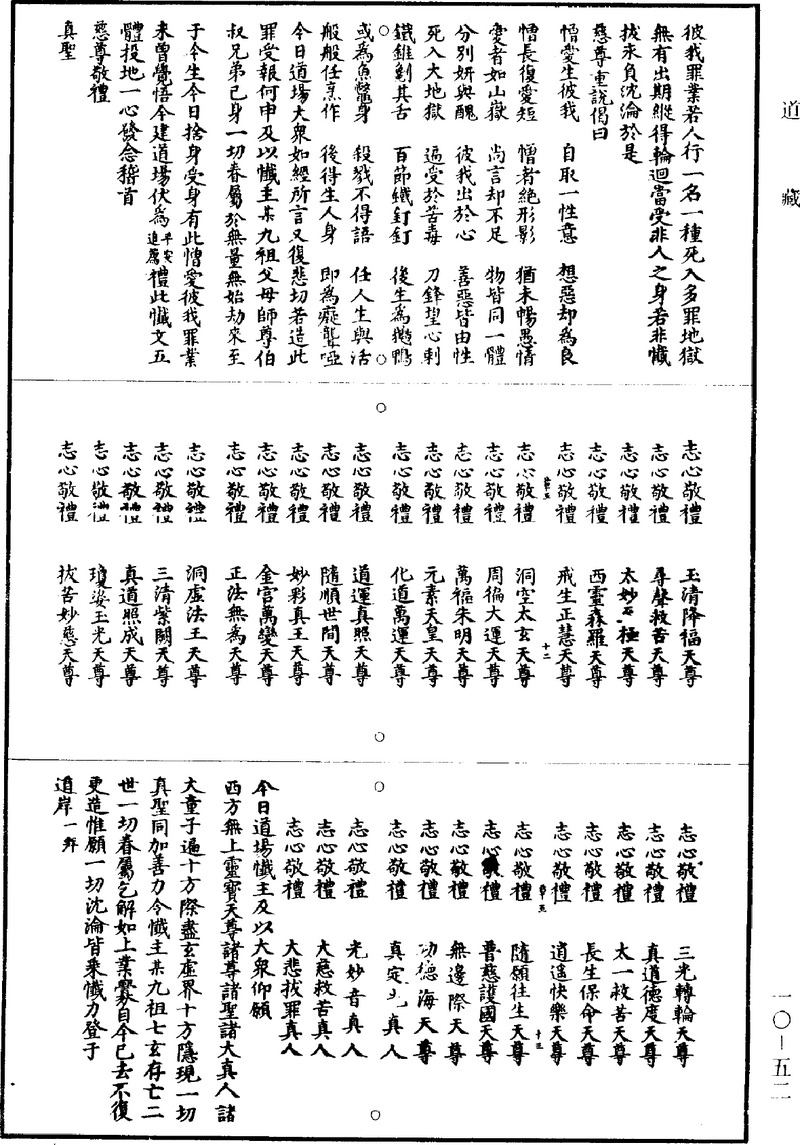 道藏
彼我罪業若人行一名一種死入多罪地獄
無有出期縱得輪迴當受非人之身若非懺
拔永負沈淪於是
慈尊重說偈曰
憎愛生彼我　自取一性意　想惡却為良
憎長復愛短　憎者絕形影　猶未暢愚情
愛者如山嶽　尚言却不足　物皆同一體
分別妍與醜　彼我出於心　善惡皆由性
死入大地獄　遍受於苦毒　刀鋒望心刺
鐵錐剜其舌　百節鐵釘釘　後生為鵝鴨
或為魚鼈身　殺戮不得語　任人生與活
般般任烹作　後得生人身　即為癡聾啞
今日道場大眾如經所言又復悲切若造此
罪受報何申及以懺主某九祖父母師尊伯
叔兄弟己身一切眷屬於無量無始劫來至
于今生今日捨身受身有此憎愛彼我罪業
未曾覺悟今建道場伏為平安追薦禮此懺文五
體投地一心發念稽首
慈尊敬禮
真聖
志心敬禮　玉清降福天尊
志心敬禮　尋聲救苦天尊
志心敬禮　太妙至極天尊
志心敬禮　西靈森羅天尊
志心敬禮　戒生正慧天尊
十二
志心敬禮　洞空太玄天尊
志心敬禮　周徧大運天尊
志心敬禮　萬福朱明天尊
志心敬禮　元素天皇天尊
志心敬禮　化道萬運天尊
志心敬禮　道運真照天尊
志心敬禮　隨順世間天尊
志心敬禮　妙彩真王天尊
志心敬禮　金宮萬變天尊
志心敬禮　正法無為天尊
志心敬禮　洞虛法王天尊
志心敬禮　三清紫闕天尊
志心敬禮　真道照成天尊
志心敬禮　瓊姿玉光天尊
志心敬禮　拔苦妙慈天尊
志心敬禮　三光轉輪天尊
志心敬禮　真道德度天尊
志心敬禮　太一救苦天尊
志心敬禮　長生保命天尊
志心敬禮　逍遙快樂天尊
十三
志心敬禮　隨願往生天尊
志心敬禮　普慈護國天尊
志心敬禮　無邊際天尊
志心敬禮　功德海天尊
志心敬禮　真定光真人
志心敬禮　光妙音真人
志心敬禮　大慈救苦真人
志心敬禮　大悲拔罪真人
今日道場懺主及以大眾仰願
西方無上靈寶天尊諸尊諸聖諸大真人諸
大童子遍十方際盡玄虛界十方隱現一切
真聖同加善力令懺主某九祖七玄存亡二
世一切眷屬乞解如上業累自今已去不復
更造惟願一切沈淪皆乘懺力登于
道岸一拜
一〇—五二